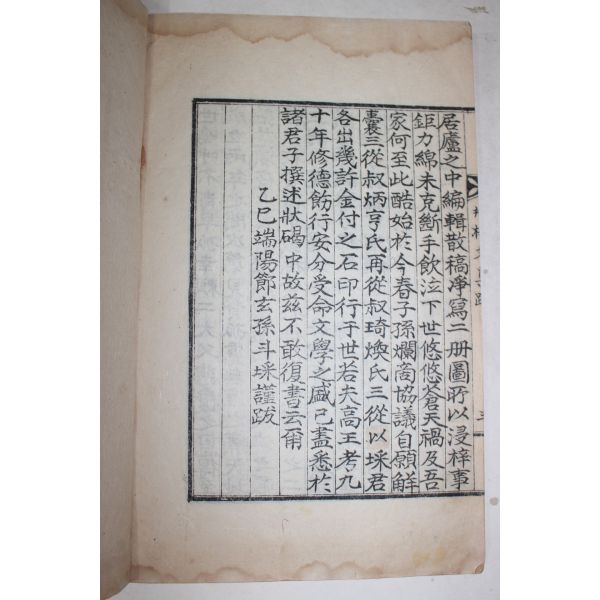 居廬之中編輯散稿淨寫二册圖所以浸梓事
鉅力綿未克斷手飮泣下世悠悠蒼天禍及吾
家何至此酷始於今春子孫爛商協議自願解
囊三從叔炳亨氏再從叔琦煥氏三從以埰君
各出幾許金付之石印行于世若夫高王考九
十年修德飭行安分受命文學之盛已盡悉於
諸君子撰述狀碣中故兹不敢復書云爾
乙巳端陽節玄孫斗埰謹跋